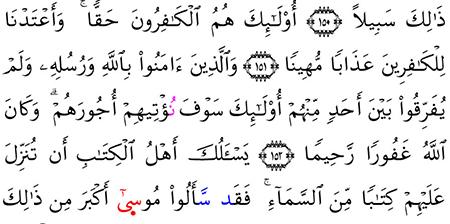 ذَٰلِكَ سَبِيلاً ﴿١٥٠﴾ أُوْلَـٰٓئِكَ هُمُ الْكَـٰفِرُونَ حَقًّا ۚ وَأَعْتَدْنَا
لِلْكَـٰفِرِينَ عَذَابًا مُّهِينًا ﴿١٥١﴾ وَالَّذِينَ ءَامَنُواْ بِاللَّهِ وَرُسُلِهِۦ وَلَمْ
يُفَرِّقُواْ بَيْنَ أَحَدٍ مِّنْهُمْ أُوْلَـٰٓئِكَ سَوْفَ نُؤْتِيهِمْ أُجُورَهُمْ ۗ وَكَانَ
اللَّهُ غَفُورًا رَّحِيمًا ﴿١٥٢﴾ يَسْـَٔلُكَ أَهْلُ الْكِتَـٰبِ أَن تُنَزِّلَ
عَلَيْهِمْ كِتَـٰبًا مِّنَ السَّمَآءِ ۚ فَقَد سَّأَلُواْ مُوسَىٰٓ أَكْبَرَ مِن ذَٰلِكَ